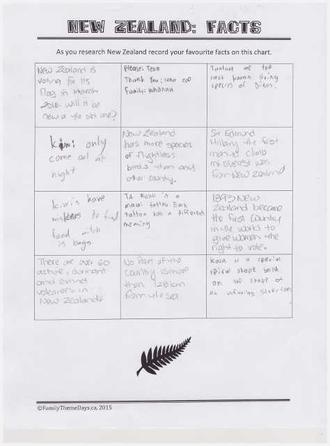 NEW ZEALAND: FACTS
As you research New Zealand record your favourite facts on this chart.
New Zealand is
voting for its
flag in March
2016. will it be
new or the old one?
Please: Tena
Thank You:
Family: Whanau
are the
last
species of
kiwi only
come out at
night
New Zealand
has more species
of flightless
birds than any
other country.
Sir Edmund
Hillary the first
man to climb
mt everest was
from New Zealand
kiwis have
to find
food which
is bugs.
is a
maori tattoo Each
tattoo has a different
meaning
1893 New
Zealand became
the first country
in the world to
give women the
right to vote.
There are over 60
active, dormant
and extinct
volcanoes in
New Zealand
No Part of the
country is more
than 128km
from the sea
Koru is a special
spiral shape based
on the shape of
an
©FamilyThemeDays.ca, 2015